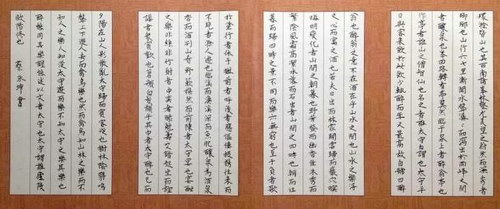 環滁皆山也其西南諸峯林壑尤美望之蔚然而深秀者
瑯琊也山行六七里漸聞水聲潺潺而瀉出於兩峰之間
者釀泉也峯回路轉有亭翼然臨于泉上者醉翁亭也
作亭者誰山之僧智仙也名之者誰太守自謂也太守
與客來飲於此飲少輒醉而年又最高故自號曰醉
翁也醉翁之意不在酒在乎山水之間也山水之樂得
之心而寓之酒也若夫日出而林霏開雲歸而巖穴暝
晦明變化者山間之朝暮也野芳發而幽香佳木秀而
繁陰風霜高潔水落而石出者山間之四時也朝而往
暮而歸四時之景不同而樂亦無窮也至于負者歌
於塗行者休于樹前者呼後者應傴僂提攜往來而
不絕者滁人遊也臨溪而漁溪深而魚肥釀泉為酒泉
香而酒洌山肴野蔌雜然而前陳者太守宴也宴酣
之樂非絲非竹射者中弈者勝觥籌交錯起坐而諠
譁者眾賓歡也蒼顏白髮頹乎其中者太守醉也已而
夕陽在山人影散亂太守歸而賓客從也樹林陰翳鳴
聲上下遊人去而禽鳥樂也然而禽鳥知山林之樂而不
知人之樂人知從太守遊而樂而不知太守之樂其樂也
醉能同其樂醒能述以文者太守也太守謂誰廬陵
歐陽修也 蔡 書